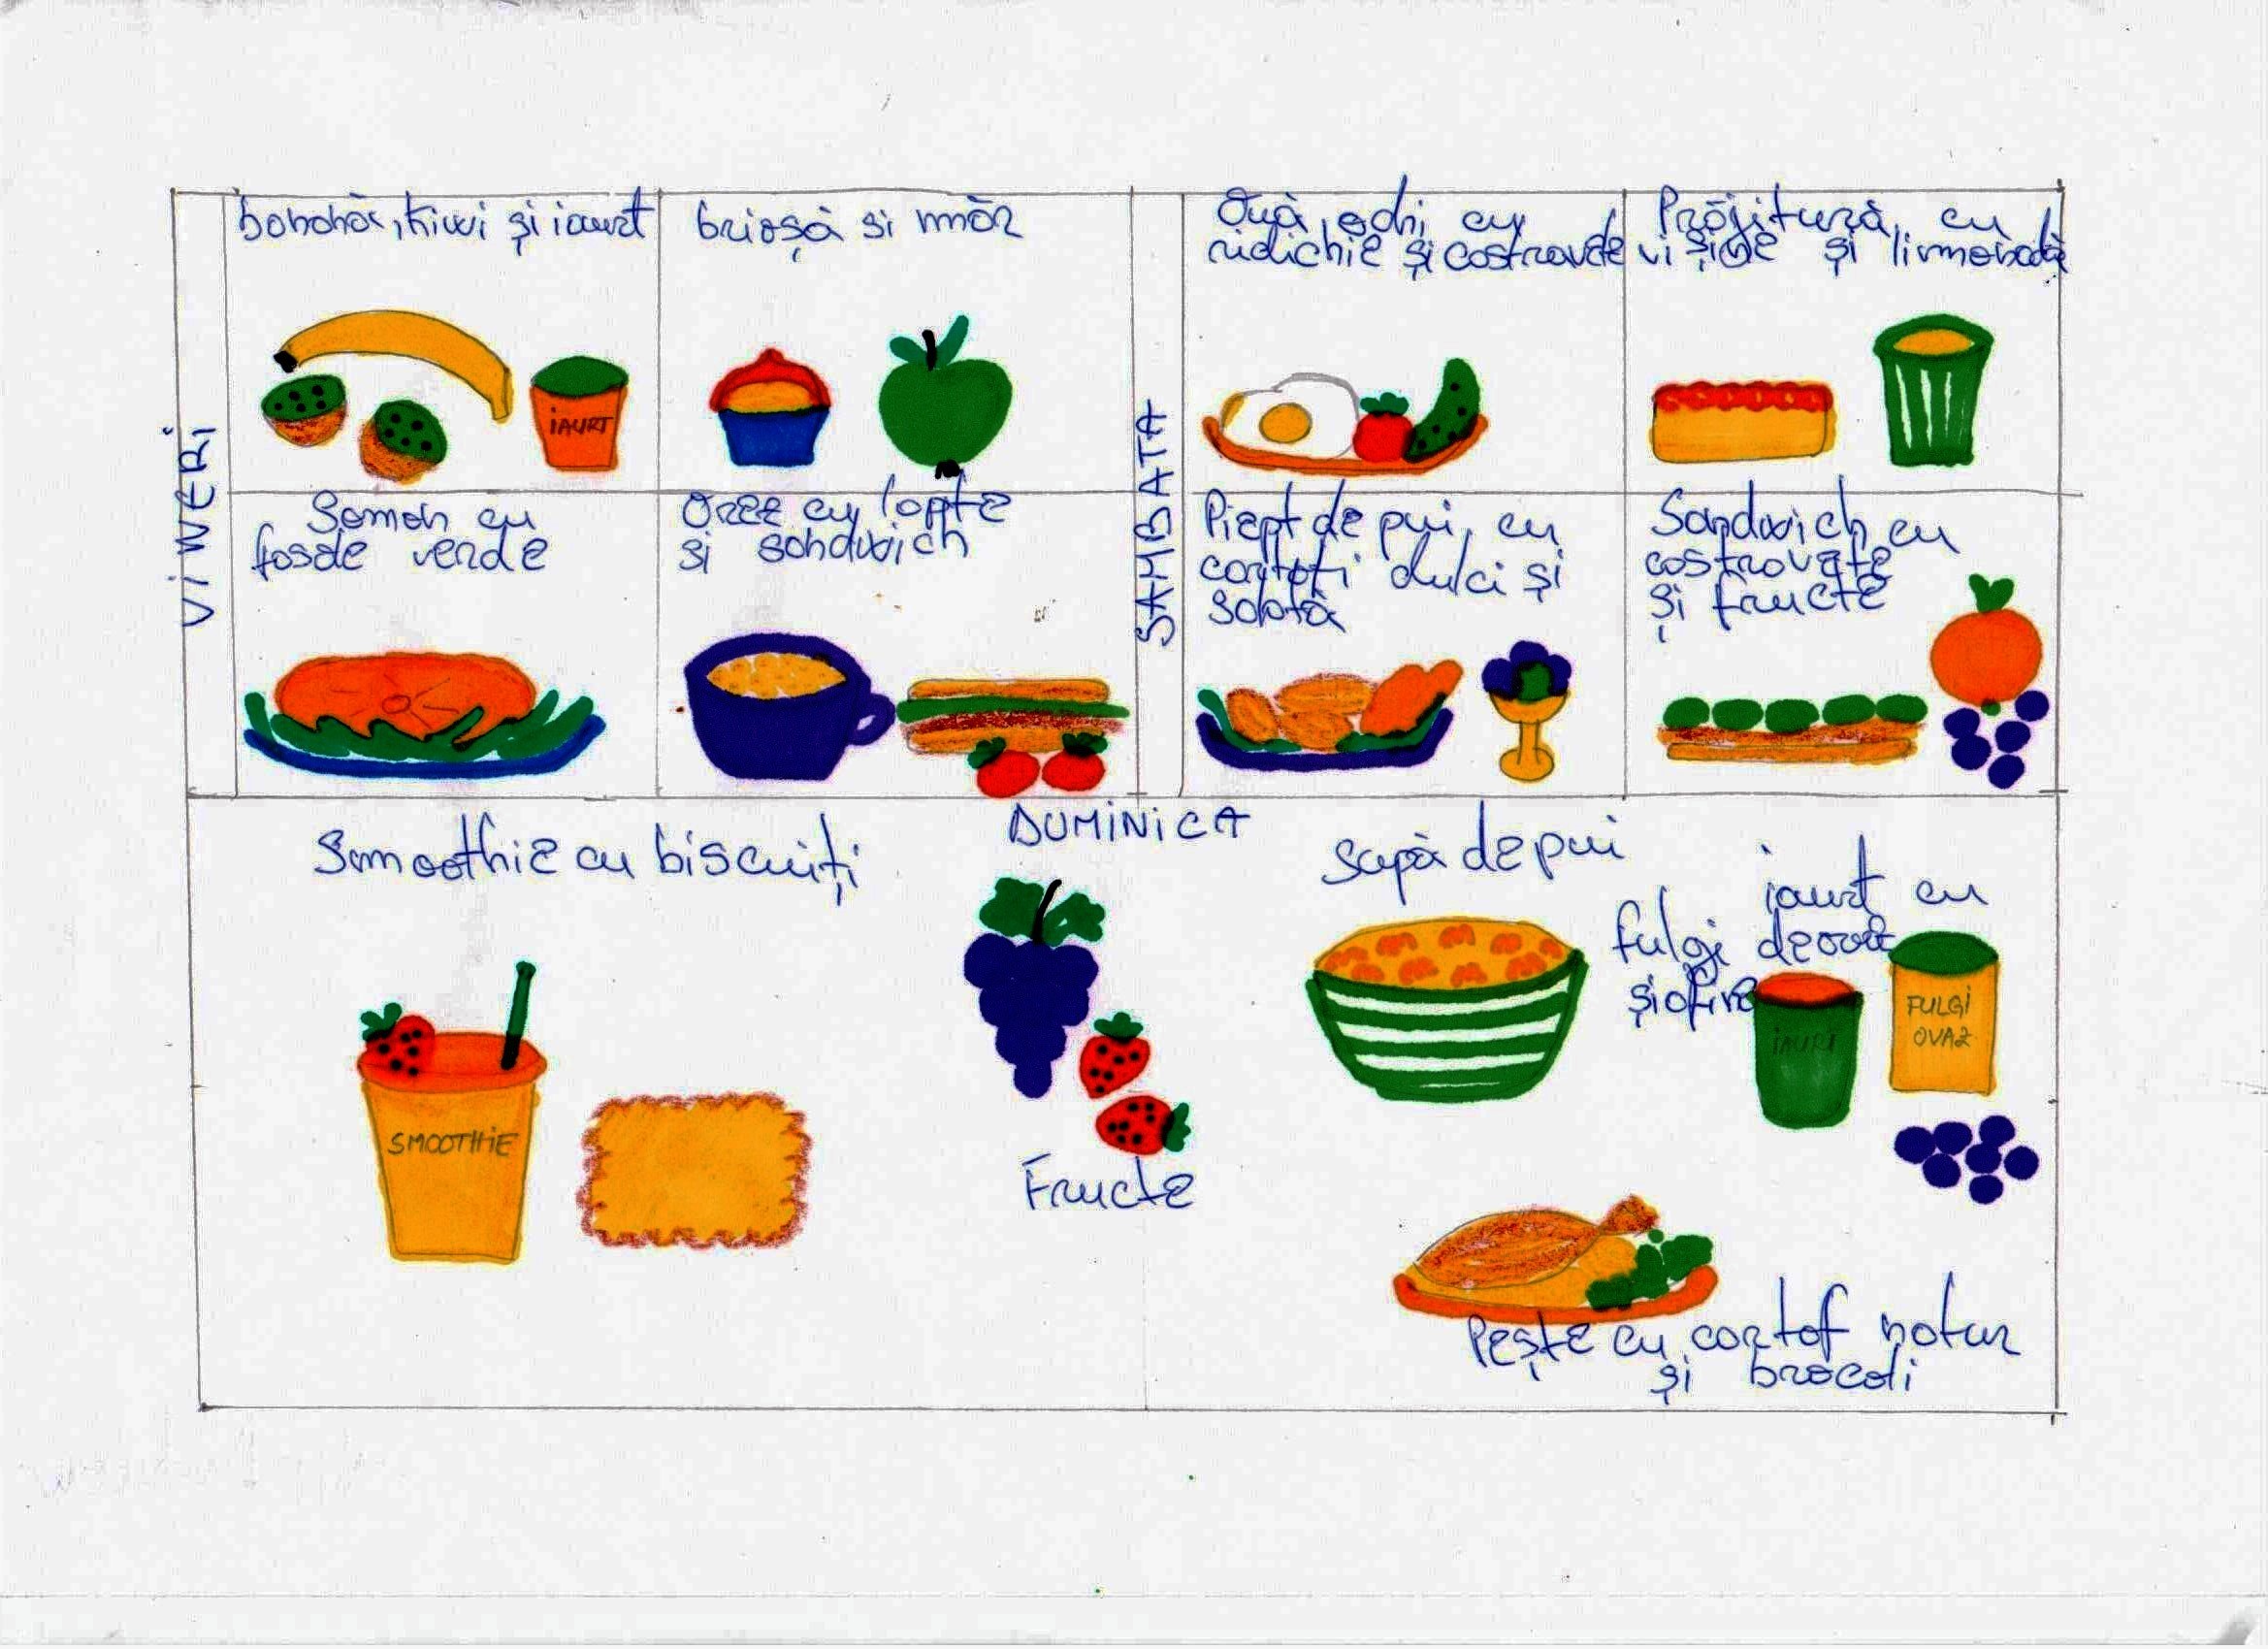 VINERI
banană, kiwi și iaurt
IAURT
brioșă si măr
Somon cu
fasole verde
Orez cu lapte
si sandwich
SAMBATA
Ouă ochi cu
ridichie și castravete
Prăjitură cu
vișine și limonadă
Piept de pui cu
cartofi dulci și
salată
Sandwich cu
castravete
și fructe
DUMINICA
Smoothie cu biscuiți
SMOOTHIE
Fructe
Supă de pui
iaurt cu
fulgi de ovăz
și afine
IAURT
FULGI
OVAZ
Pește cu cartof natur
și brocoli